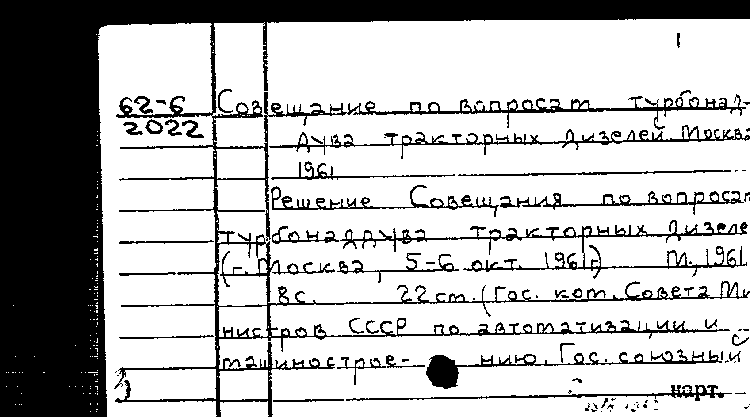 1
62-6 Совещание по вопросам турбонад-
2022 дува тракторных дизелей. Москва
1961
Решение Совещания по вопросам
турбонаддува тракторных дизеле
(г. Москва, 5-6 окт. 1961г) М., 1961
8с. 22см. (Гос. ком. Совета Ми
нистров СССР по автоматизации и
машинострое- нию. Гос. союзный
нарт.